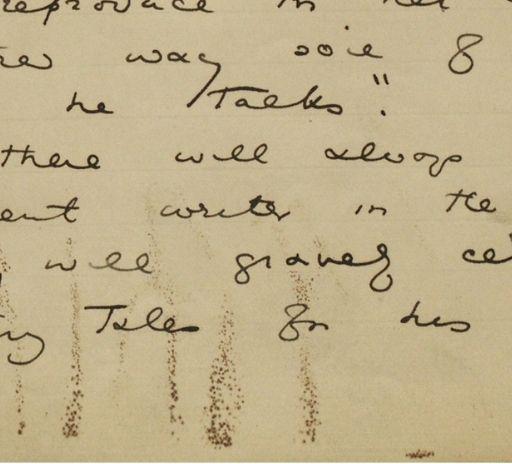 reproduce in her
way some of
he talks".
there will always
writer in the
will gravely
Tales for his